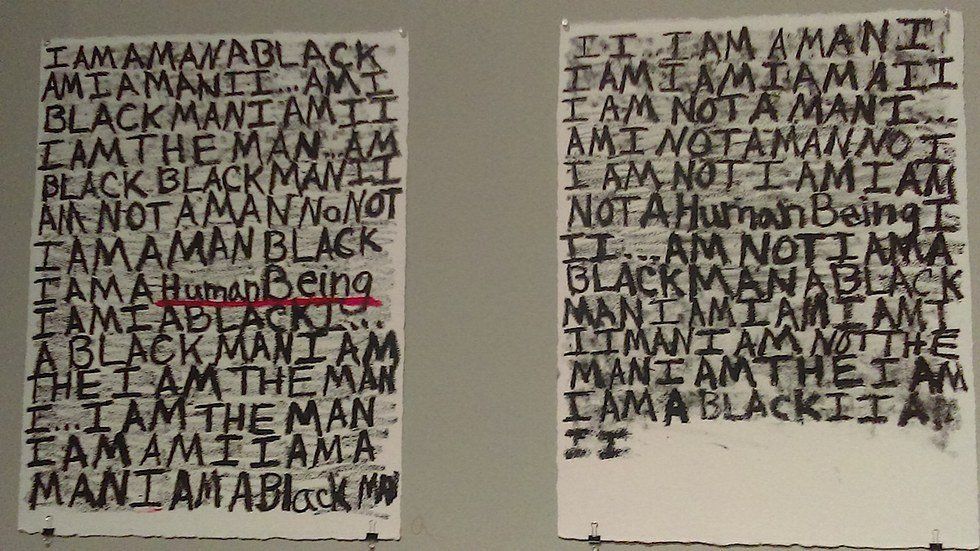 I AM A MAN A BLACK
AM I A MAN I I... AM I
BLACK MAN I AM I I
I AM THE MAN...AM
BLACK BLACK MAN I I
AM NOT A MAN NO NOT
I AM A MAN BLACK
I AM A Human Being
I AM I A BLACK I....
A BLACK MAN I AM
THE I AM THE MAN
I...I AM THE MAN
I AM AM I I AM A
MAN I AM A Black MAN
I I I AM A MAN I
I AM I AM I AM A I I
I AM NOT A MAN I...
AM I NOT A MAN NO I
I AM NOT I AM I AM
NOT A Human Being I
I I...AM NOT I AM A
BLACK MAN A BLACK
MAN I AM I AM I AM I
I I MAN I AM NOT THE
MAN I AM THE I AM
I AM A BLACK I I A
I I